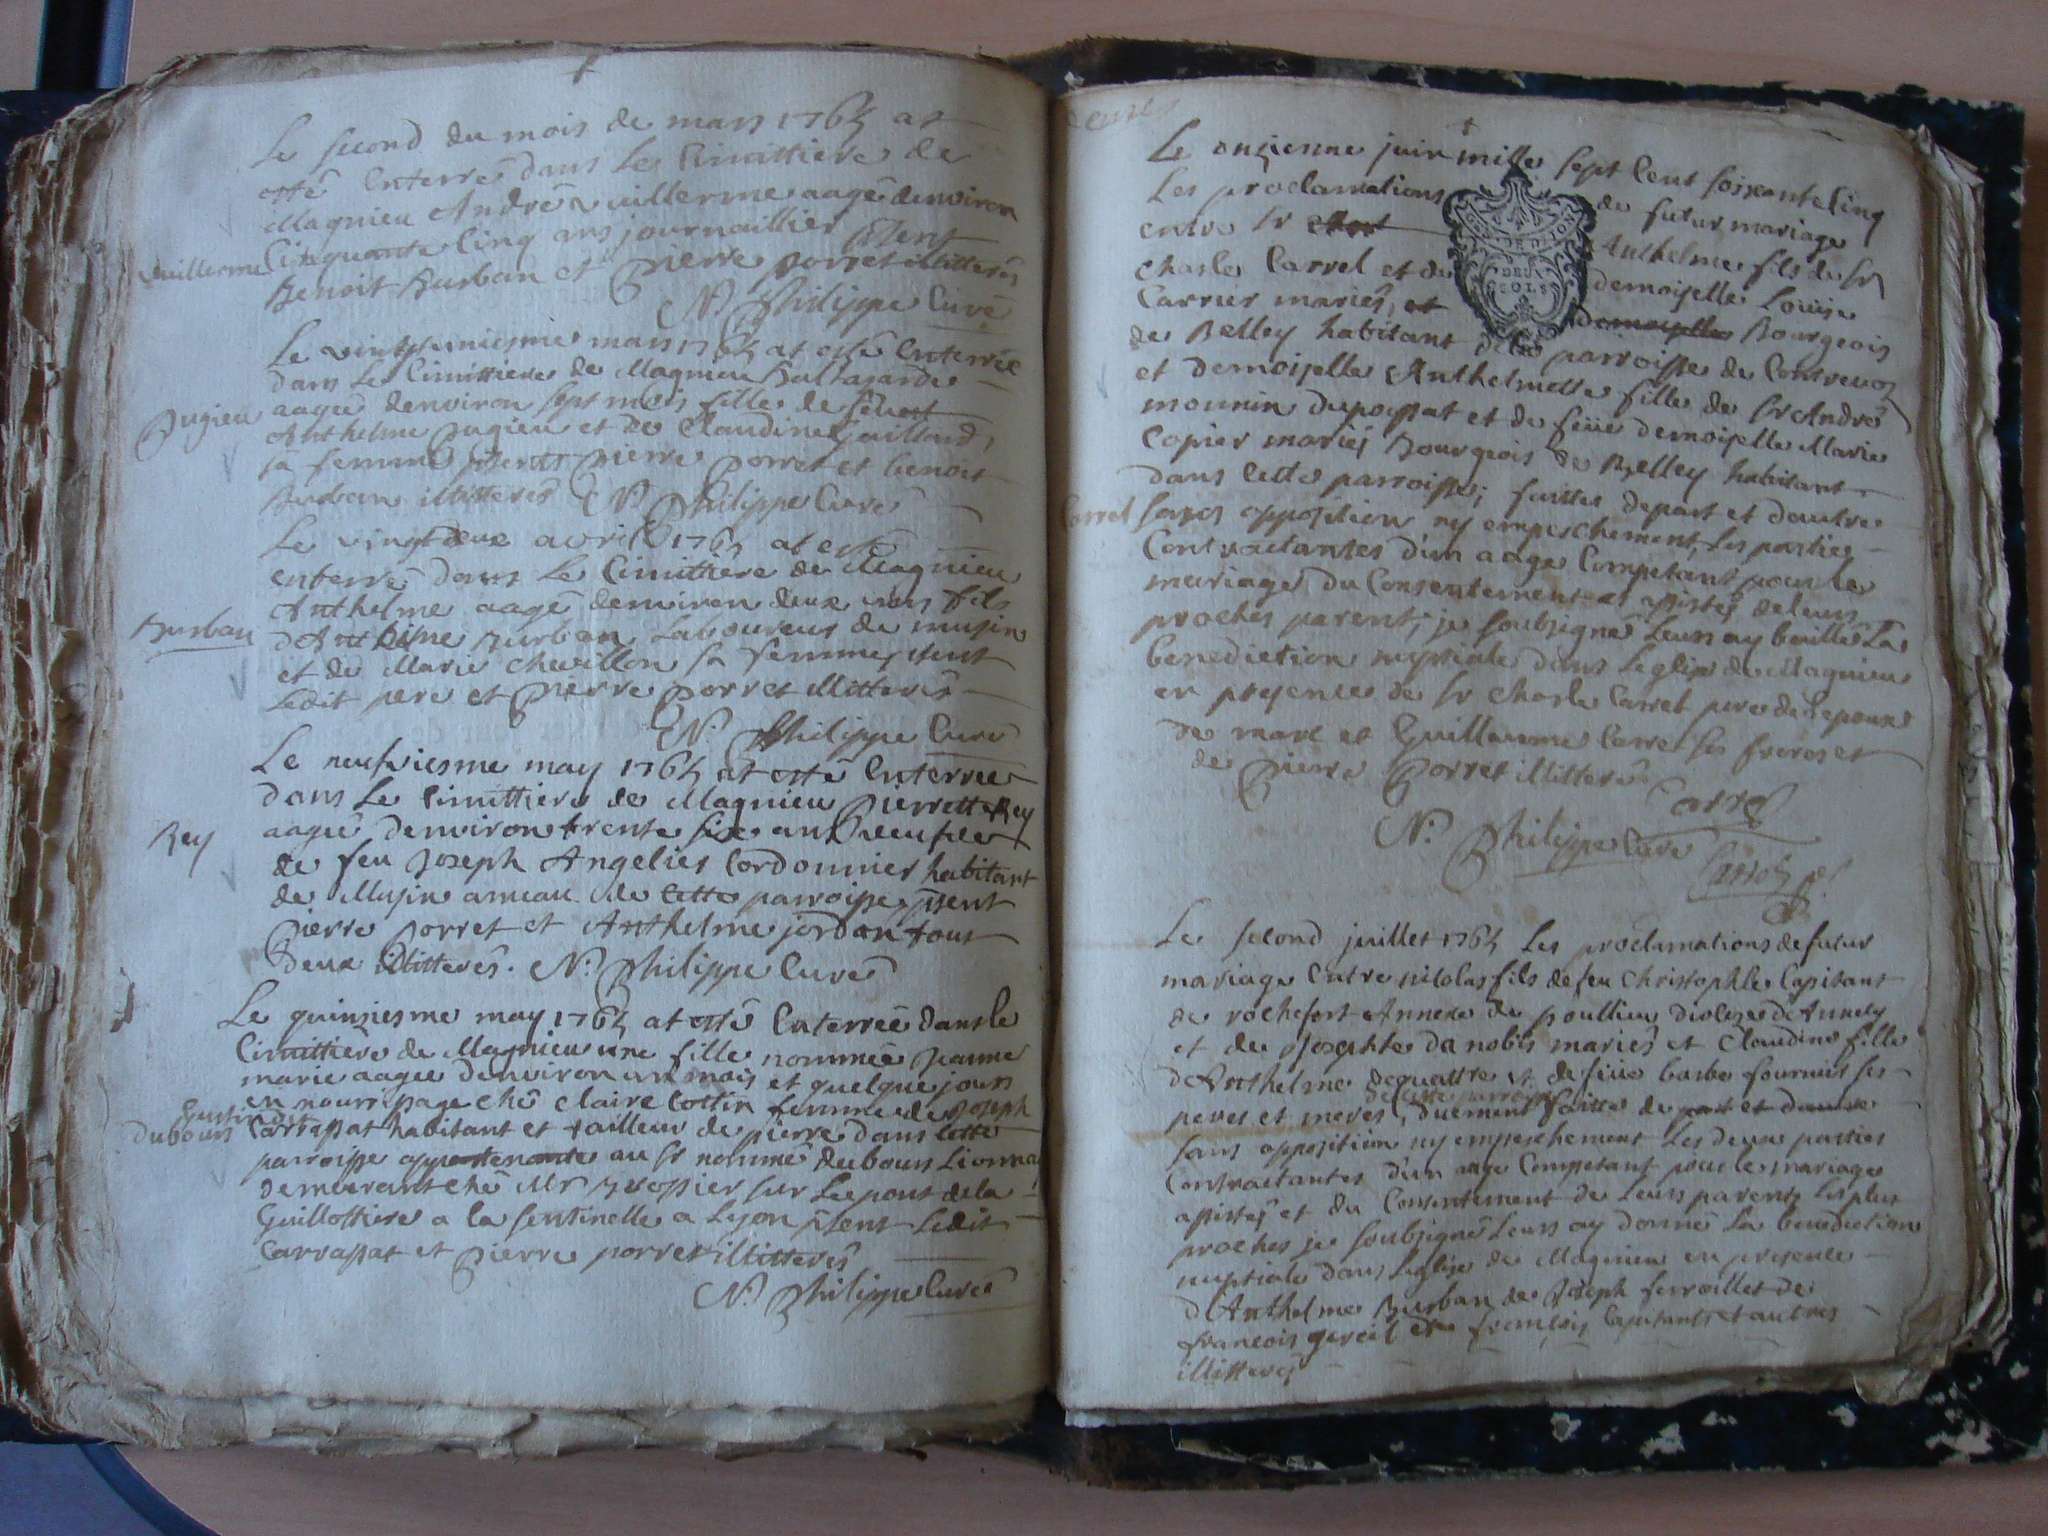 Le second du mois de mars 1765 at
esté Enterré dans Le Cimittiere de
Magnieu André Vuillerme aagé denviron
Vuillerme Cinquante Cinq ans journaillier psent
Benoit Burban et pierre porret illitterés
N. Philippe Curé
Le vingt mars 1765 at esté Enterrée
dans Le Cimittiere de Magnieu Baltazarde
Pugieu aagée denviron sept mois fille de
Anthelme pugieu et de Claudine Gaillard
sa femme psents pierre porret et benoit
Burban illitterés N. Philippe Curé
Le vingt deux avril 1765 at esté
enterré dans Le Cimittiere de Magnieu
Anthelme aagé denviron deux ans fils
Burban d'Anthelme Burban Laboureur de musin
et de Marie Chevillon sa femme psent
Ledit pere et pierre porret illitterés
N. Philippe Curé
Le neufviesme may 1765 at esté Enterrée
dans Le Cimittiere de Magnieu pierrette Rey
Rey aagée denviron trente six ans veufve
de feu Joseph Angelier Cordonnier habitant
de Musin ameau de Cette parroisse psent
pierre porret et Anthelme jordan tous
deux illitterés. N. Philippe Curé
Le quinziesme may 1765 at esté Enterrée dans le
Cimittiere de Magnieu une fille nommée Jeanne
marie aagée denviron un mois et quelque jours
en nourrissage ché claire Cottin femme de Joseph
dubours Carrassat habitant et tailleur de pierre dans Cette
parroisse appartenante au Sr nommé dubours Lionnay
demeurant ché Mr sur Le pont de la
Guillottiere a la sentinelle a Lyon psent Ledit
Carrassat et pierre porret illitterés
N. Philippe Curé
Le onzieme juin mille sept Cent soixante Cinq
Les proclamations de futur mariage
entre Sr Anthelme fils du Sr
Charle Carrel et de demoiselle Louise
Carrier mariés, et demoiselle Bourgeois
de Belley habitant de la parroisse de Contrevoz
et demoiselle Anthelmette fille de Sr André
mounin dupoissat et de feüe demoiselle Marie
Copier mariés Bourgeois de Belley habitant
dans Cette parroisse; faittes de part et d'autre
Carrel sans opposition ny empeschement, Les parties
Contractantes d'un aage Competant pour le
mariage du Consentement et assistés de leurs
proches parents, je soubsigné Leurs ay baillé La
benediction nuptiale dans Leglise de Magnieu
en presence de Sr Charle Carrel pere de l'epoux
de marc et Guillaume Carrel ses freres et
de pierre porret illitterés
Carrel
N. Philippe Curé
Carrel
Le second juillet 1765 Les proclamations de futur
mariage Entre nicolas fils de feu Christophle Capitant
de rochefort Annexe de poullieu diocese d'Annecy
et de Josephte da nobis mariés et Claudine fille
d'Anthelme dequattre et de feüe barbe fournier ses
de cette parroisse
peres et meres, duement faittes de part et d'autre
sans opposition ny empeschement Les deux parties
Contractantes d'un aage Competant pour le mariage
assistés et du Consentement de Leurs parents les plus
proches je soubsigné Leurs ay donné La benediction
nuptiale dans Leglise de Magnieu en presence
d'Anthelme Burban de Joseph ferroillet de
francois et francois Capitant et autres
illitterés